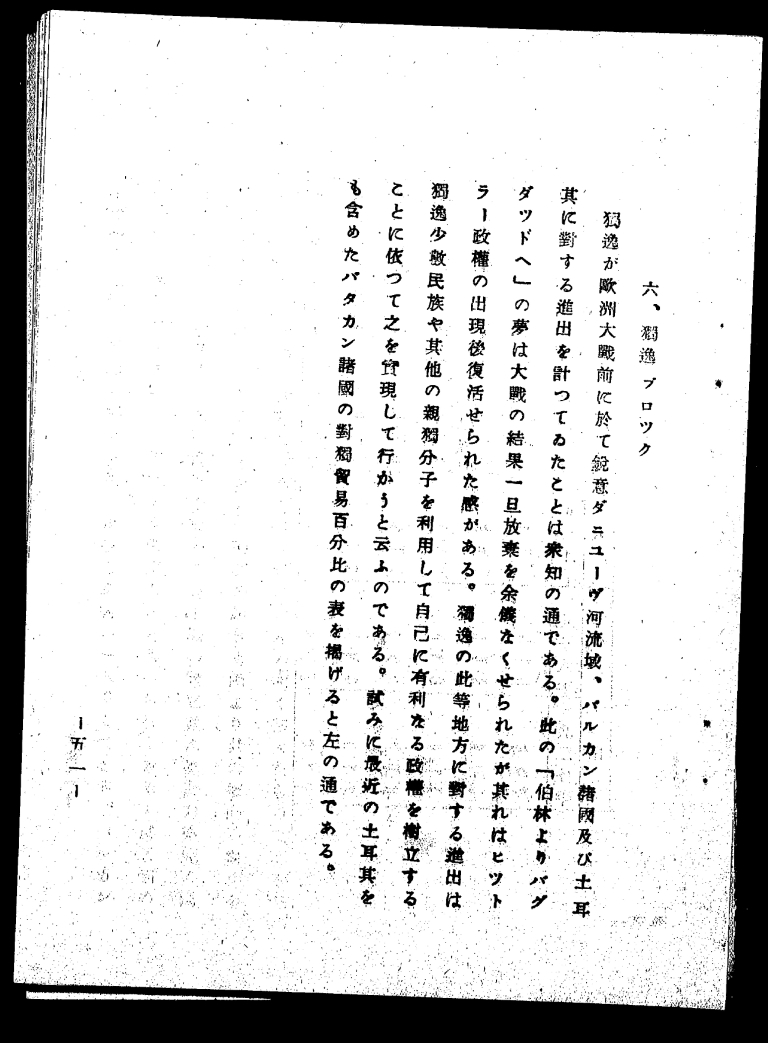 六、獨逸ブロツク
獨逸が歐洲大戰前に於て銳意ダニユーヴ河流域、バルカン諸國及び土耳
其に對する進出を計つてゐたことは衆知の通である。此の「伯林よりバグ
ダツドへ」の夢は大戰の結果一旦放棄を余儀なくせられたが其れはヒツト
ラー政權の出現後復活せられた感がある。獨逸の此等地方に對する進出は
獨逸少數民族や其他の親獨分子を利用して自己に有利なる政權を樹立する
ことに依つて之を實現して行かうと云ふのである。試みに最近の土耳其を
も含めたバタカン諸國の對獨貿易百分比の表を揭げると左の通である。
ー五一ー